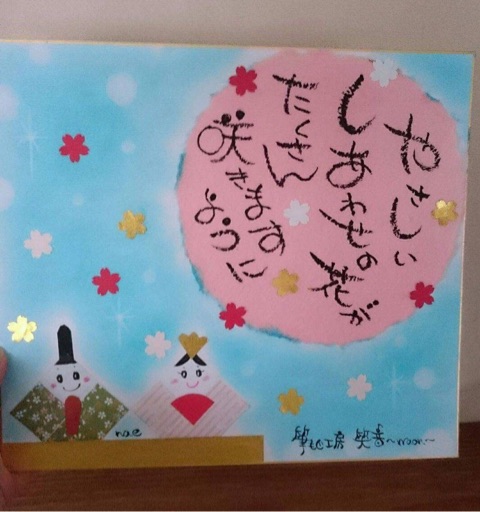 やさしい
しあわせの花が
たくさん
咲きます
ように
nae
工房 笑音 〜noon〜